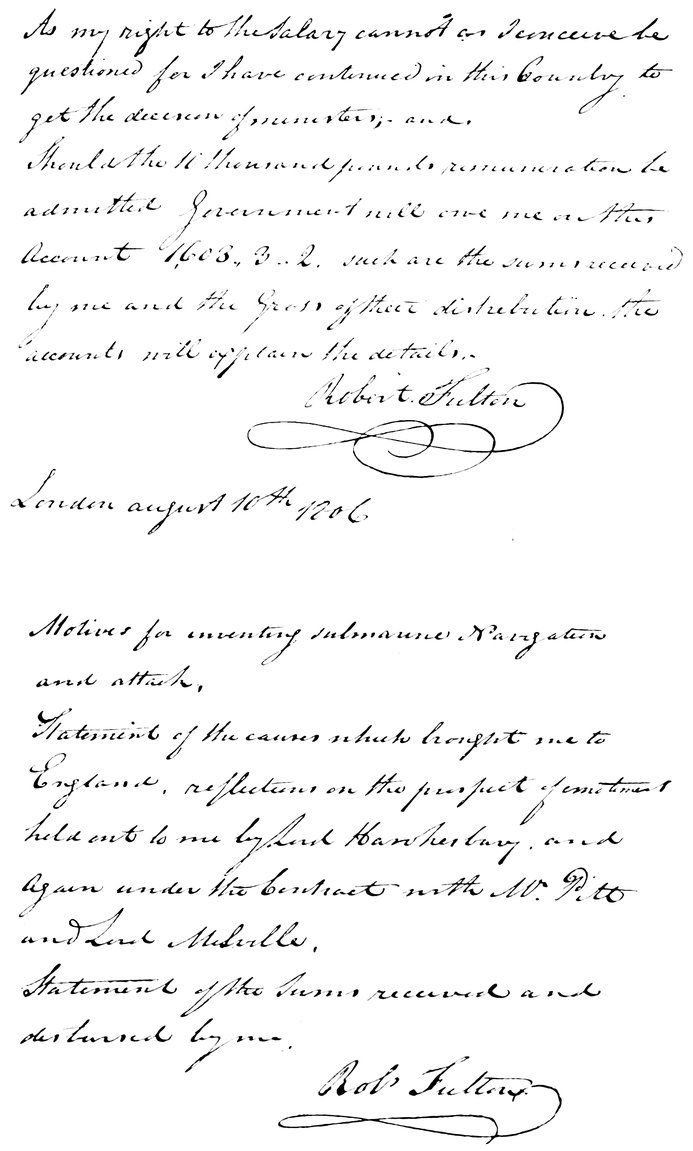 As my right to the Salary cannot as I conceive be
questioned for I have continued in this Country to
get the decision of ministers,- and.
Should the 10 thousand pounds remuneration be
admitted Government will owe me on this
Account 1603,, 3 - 2. such are the sums received
by me and the Gross of their distribution. the
accounts will explain the details.-
Robert Fulton
London august 10th 1806
Motives for inventing submarine Navigation
and attack.
Statement of the causes which brought me to
England, reflections on the prospect of
held out to me by Lord Hawkesbury, and
Again under the Contract with Mr. Pitt
and Lord Melville.
Statement of the Sums received and
disbursed by me.
Robt Fulton